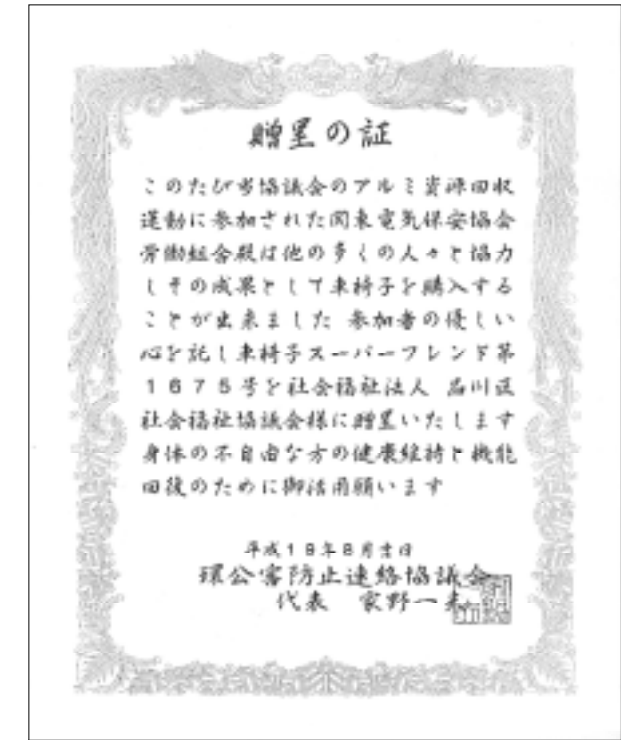 贈呈の証
このたび当協議会のアルミ資源回収
運動に参加された関東電気保安協会
労働組合殿は他の多くの人々と協力
しその成果として車椅子を購入する
ことが出来ました 参加者の優しい
心を託し車椅子スーパーフレンド第
1675号を社会福祉法人 品川区
社会福祉協議会様に贈呈いたします
身体の不自由な方の健康維持と機能
回復のために御活用願います
平成19年8月吉日
環公害防止連絡協議会
代表 家野一